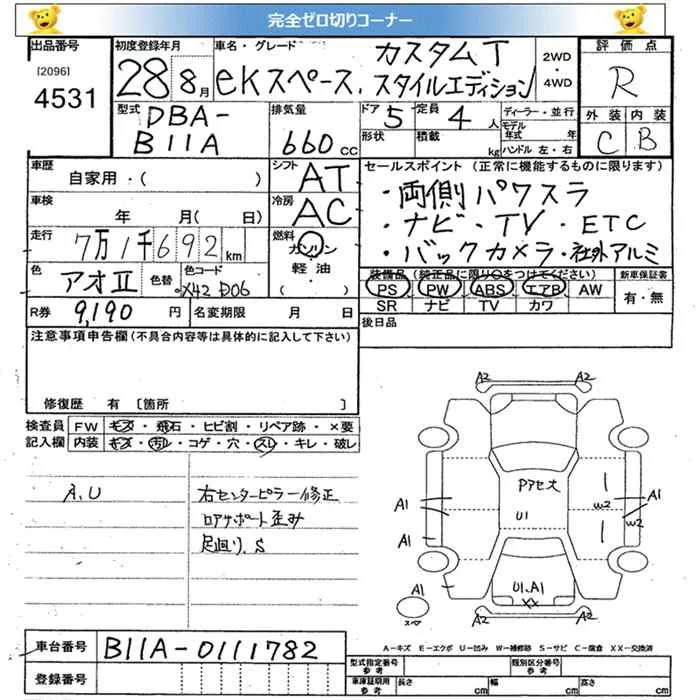 完全ゼロ切りコーナー
出品番号
[2096]
4531
初度登録年月
28 8月
車名・グレード
カスタムT
ekスペース. スタイルエディション
2WD
・
4WD
評価点
R
外装 内装
C B
型式
DBA-
B11A
排気量
660 CC
ドア
5
定員
4 人
形状
積載 kg
ディーラー・並行
モデル年式 年
ハンドル 左・右
車歴
自家用・( )
シフト
AT
車検
年 月( 日)
冷房
AC
走行
7万1千692 km
燃料
ガソリン
軽油
・( )
色
アオⅡ
色替
色コード
X42 D06
R券 9,190 円
名変期限 月 日
セールスポイント (正常に機能するものに限ります)
・両側パワスラ
・ナビ・TV・ETC
・バックカメラ・社外アルミ
装備品 (純正品に限り○をつけてください)
PS PW ABS エアB AW
SR ナビ TV カワ
新車保証書
有・無
後日品
注意事項申告欄(不具合内容等は具体的に記入して下さい)
修復歴 有 〔箇所 〕
検査員記入欄
FW キズ・飛石・ヒビ割・リペア跡・×要
内装 キズ・汚れ・コゲ・穴・スレ・キレ・破レ
A.U
右センターピラー修正
ロアサポート歪み
足回り.S
A2 A2
A1
A1
A1
Pアセ大
U1
U1.A1
XX
W2
A1
W2
スペ
A2 A2
車台番号
B11A-0111782
登録番号
A-キズ E-エクボ U-凹み W-補修跡 S-サビ C-腐食 XX-交換済
型式指定番号
参考
類別区分番号
参考
車庫証明用
参考
長さ cm
幅 cm
高さ cm